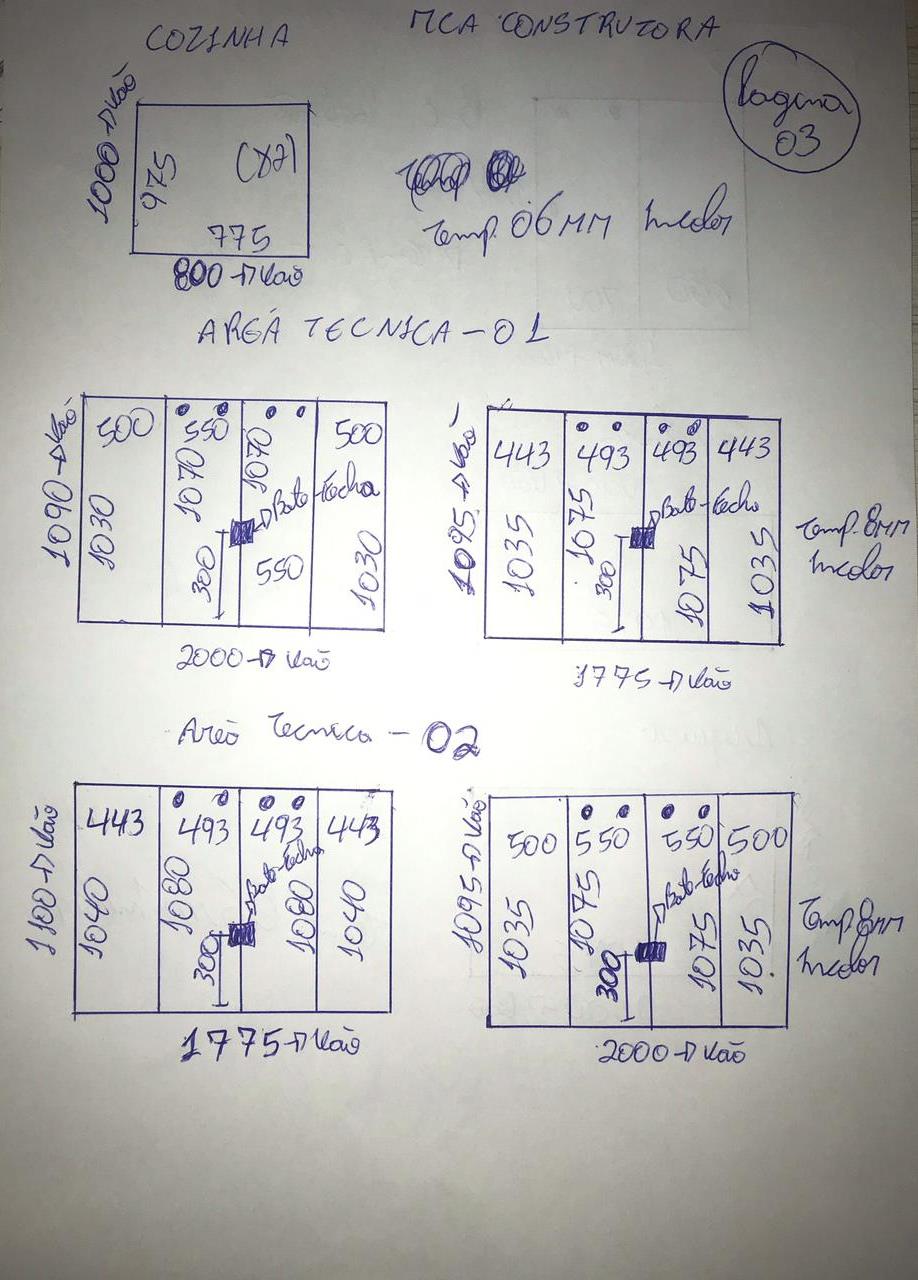 COZINHA
MCA CONSTRUTORA
Pagina
03
1000 → Vão
975
(x2)
775
800 → Vão
Temp. 06MM Incolor
AREÁ TECNICA - 01
1090 → Vão
500
550
500
1030
1070
1070
Bate-Fecha
300
550
1030
2000 → Vão
1095 → Vão
443
493
493
443
1035
1075
Bate-Fecha
300
1075
1035
1775 → Vão
Temp. 8MM
Incolor
Areá Tecnica - 02
1100 → Vão
443
493
493
443
1040
1080
Bate-Fecha
300
1080
1040
1775 → Vão
1095 → Vão
500
550
550
500
1035
1075
Bate-Fecha
300
1075
1035
2000 → Vão
Temp 8MM
Incolor